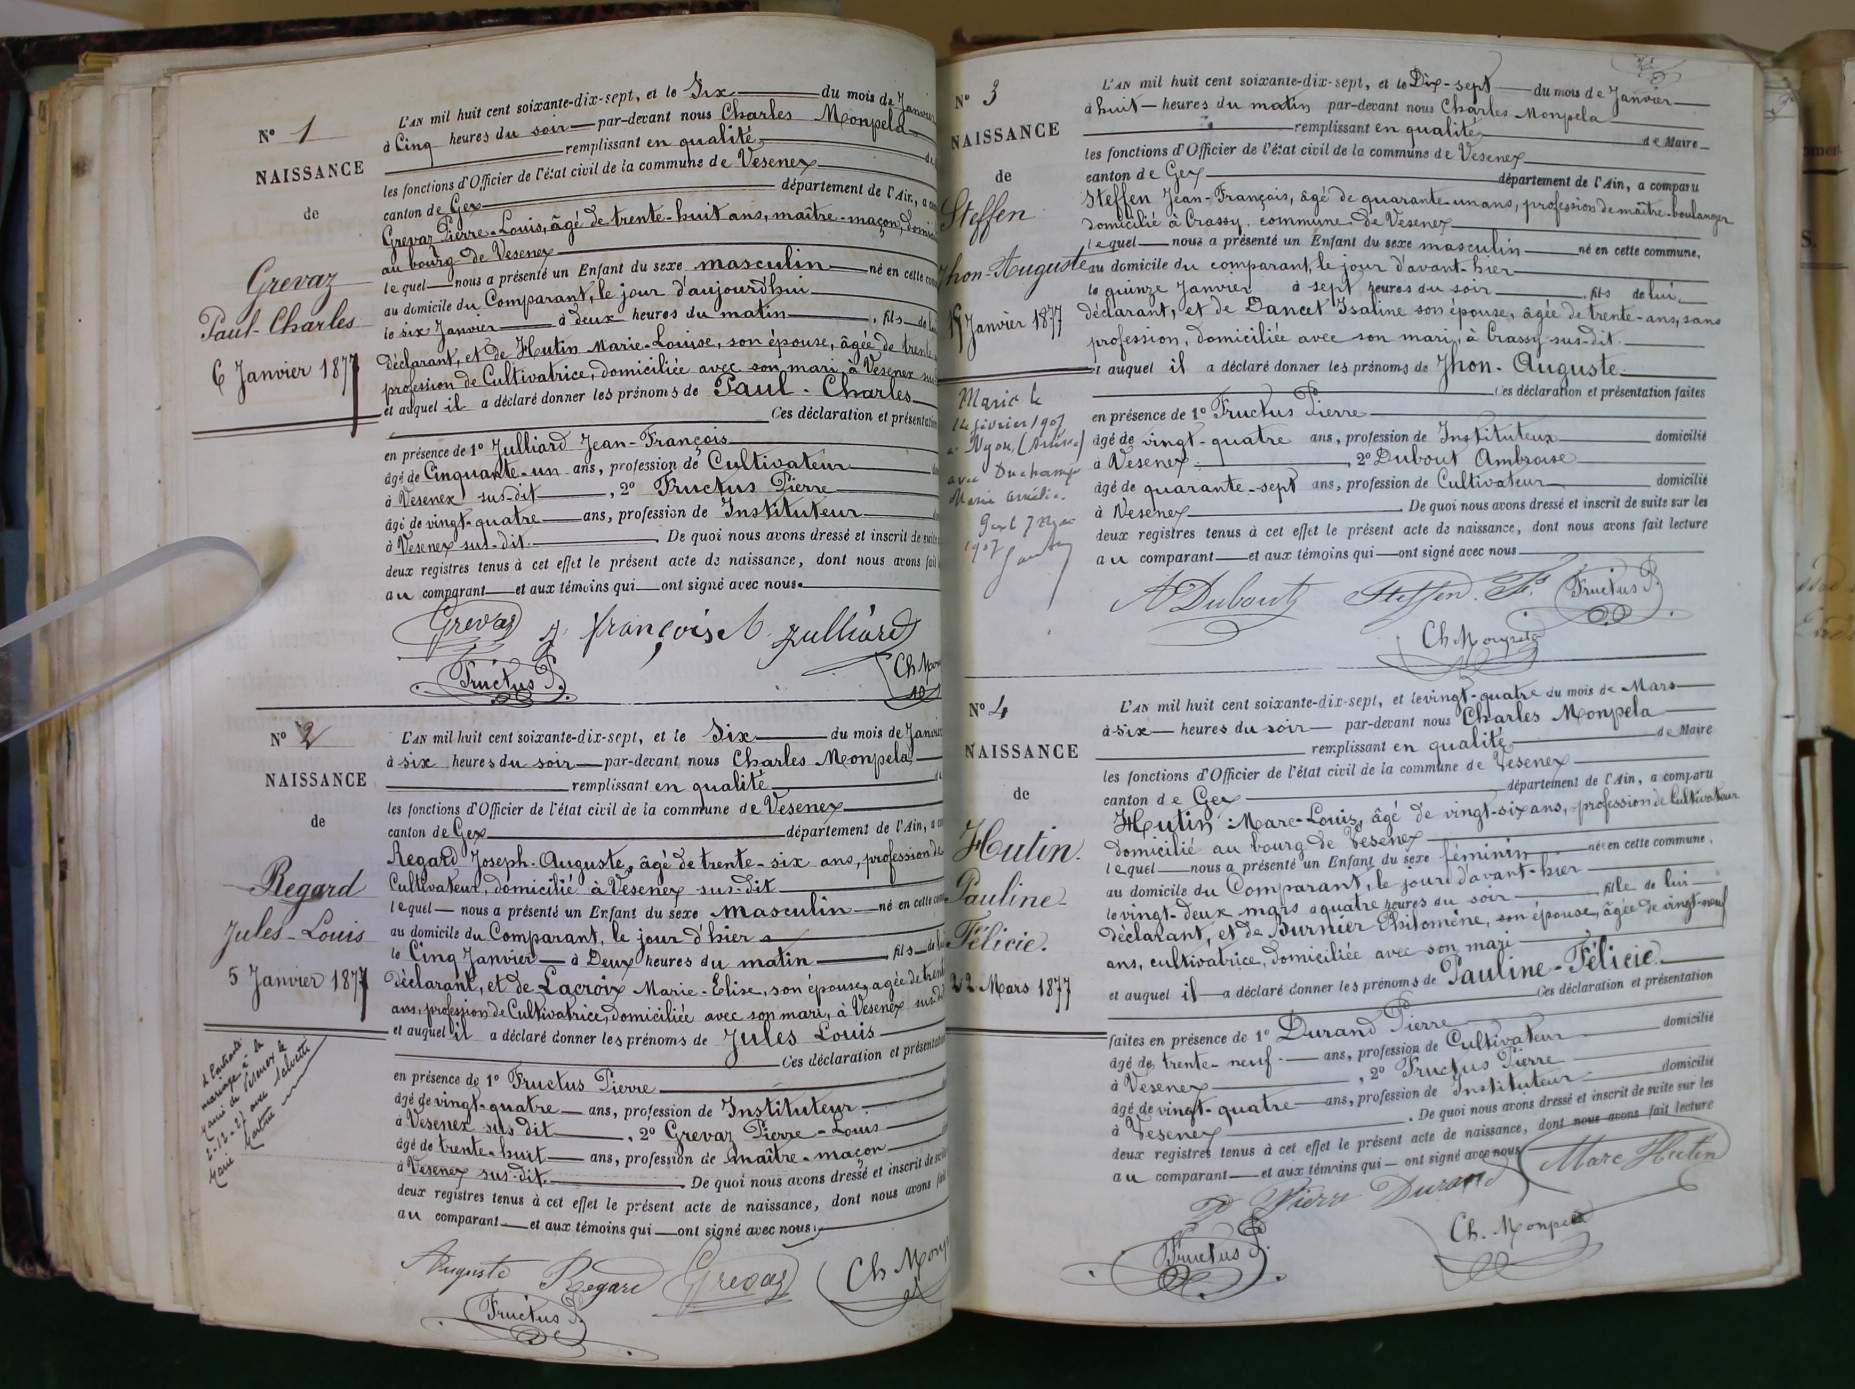 N° 1
NAISSANCE
de
Grevaz
Paul-Charles
6 Janvier 1877
L'AN mil huit cent soixante-dix-sept, et le Six du mois de Janvier
à Cinq heures du soir par-devant nous Charles Monpela
remplissant en qualité
les fonctions d'Officier de l'état civil de la commune de Vesenex
canton de Gex département de l'Ain, a
Grevaz Pierre-Louis, âgé de trente-huit ans, maître-maçon,
au bourg de Vesenex
lequel nous a présenté un Enfant du sexe masculin né en cette
au domicile du Comparant, le jour d'aujourd'hui
le six Janvier à deux heures du matin, fils
déclarant, et de Hutin Marie-Louise, son épouse, âgée de trente
profession de Cultivatrice, domiciliée avec son mari, à Vesenex
et auquel il a déclaré donner les prénoms de Paul-Charles
Ces déclaration et présentation
en présence de 1° Julliard Jean-François
âgé de Cinquante-un ans, profession de Cultivateur
à Vesenex sus-dit, 2° Fructus Pierre
âgé de vingt-quatre ans, profession de Instituteur
à Vesenex sus-dit. De quoi nous avons dressé et inscrit de suite
deux registres tenus à cet effet le présent acte de naissance, dont nous avons fait
au comparant et aux témoins qui ont signé avec nous.
Grevaz J. françois Julliard
Fructus P. Ch Mon
N° 2
NAISSANCE
de
Regard
Jules-Louis
5 Janvier 1877
mariage à la
2-12-27 avec
Marie
L'AN mil huit cent soixante-dix-sept, et le Six du mois de Janvier
à six heures du soir par-devant nous Charles Monpela,
remplissant en qualité
les fonctions d'Officier de l'état civil de la commune de Vesenex
canton de Gex département de l'Ain, a
Regard Joseph-Auguste, âgé de trente-six ans, profession de
Cultivateur, domicilié à Vesenex sus-dit
lequel nous a présenté un Enfant du sexe Masculin né en cette
au domicile du Comparant, le jour d'hier
le Cinq Janvier à Deux heures du matin fils
déclarant, et de Lacroix Marie-Elise, son épouse, agée de trente
ans, profession de Cultivatrice, domiciliée avec son mari, à Vesenex sus-dit
et auquel il a déclaré donner les prénoms de Jules Louis
Ces déclaration et présentation
en présence de 1° Fructus Pierre
âgé de vingt-quatre ans, profession de Instituteur
à Vesenex sus dit, 2° Grevaz Pierre-Louis
âgé de trente-huit ans, profession de maître-maçon
à Vesenex sus-dit. De quoi nous avons dressé et inscrit de
deux registres tenus à cet effet le présent acte de naissance, dont nous avons fait
au comparant et aux témoins qui ont signé avec nous.
Auguste Regard Grevaz Ch Monp
Fructus P.
N° 3
NAISSANCE
de
Steffen
Jhon-Auguste
15 Janvier 1877
Marié le
14 février 1907
à Nyon (Suisse)
avec Duchamp
Marie
Gex
1907
L'AN mil huit cent soixante-dix-sept, et le Dix-sept du mois de Janvier
à huit heures du matin par-devant nous Charles Monpela
remplissant en qualité de Maire
les fonctions d'Officier de l'état civil de la commune de Vesenex
canton de Gex département de l'Ain, a comparu
Steffen Jean-François, âgé de quarante-un ans, profession de maître-boulanger
domicilié à Crassy, commune de Vesenex
lequel nous a présenté un Enfant du sexe masculin né en cette commune,
au domicile du comparant, le jour d'avant-hier
le quinze Janvier à sept heures du soir, fils de lui
déclarant, et de Dancet Isaline son épouse, âgée de trente-ans, sans
profession, domiciliée avec son mari, à Crassy sus-dit
et auquel il a déclaré donner les prénoms de Jhon-Auguste.
Ces déclaration et présentation faites
en présence de 1° Fructus Pierre
âgé de vingt-quatre ans, profession de Instituteur domicilié
à Vesenex, 2° Dubout Ambroise
âgé de quarante-sept ans, profession de Cultivateur domicilié
à Vesenex. De quoi nous avons dressé et inscrit de suite sur les
deux registres tenus à cet effet le présent acte de naissance, dont nous avons fait lecture
au comparant et aux témoins qui ont signé avec nous
A Dubout Steffen. Fs Fructus P.
Ch. Monpela
N° 4
NAISSANCE
de
Hutin.
Pauline-
Félicie.
22 Mars 1877
L'AN mil huit cent soixante-dix-sept, et le vingt-quatre du mois de Mars
à six heures du soir par-devant nous Charles Monpela
remplissant en qualité de Maire
les fonctions d'Officier de l'état civil de la commune de Vesenex
canton de Gex département de l'Ain, a comparu
Hutin Marc-Louis, âgé de vingt-six ans, profession de Cultivateur
domicilié au bourg de Vesenex
lequel nous a présenté un Enfant du sexe féminin né en cette commune,
au domicile du Comparant, le jour d'avant-hier
le vingt-deux mars à quatre heures du soir fille de lui
déclarant, et de Burnier Philomène, son épouse, âgée de vingt-neuf
ans, cultivatrice, domiciliée avec son mari
et auquel il a déclaré donner les prénoms de Pauline-Félicie.
Ces déclaration et présentation
faites en présence de 1° Durand Pierre
âgé de trente-neuf ans, profession de Cultivateur domicilié
à Vesenex, 2° Fructus Pierre
âgé de vingt-quatre ans, profession de Instituteur domicilié
à Vesenex. De quoi nous avons dressé et inscrit de suite sur les
deux registres tenus à cet effet le présent acte de naissance, dont nous avons fait lecture
au comparant et aux témoins qui ont signé avec nous
Marc Hutin
Pierre Durand
Fructus P. Ch. Monpela